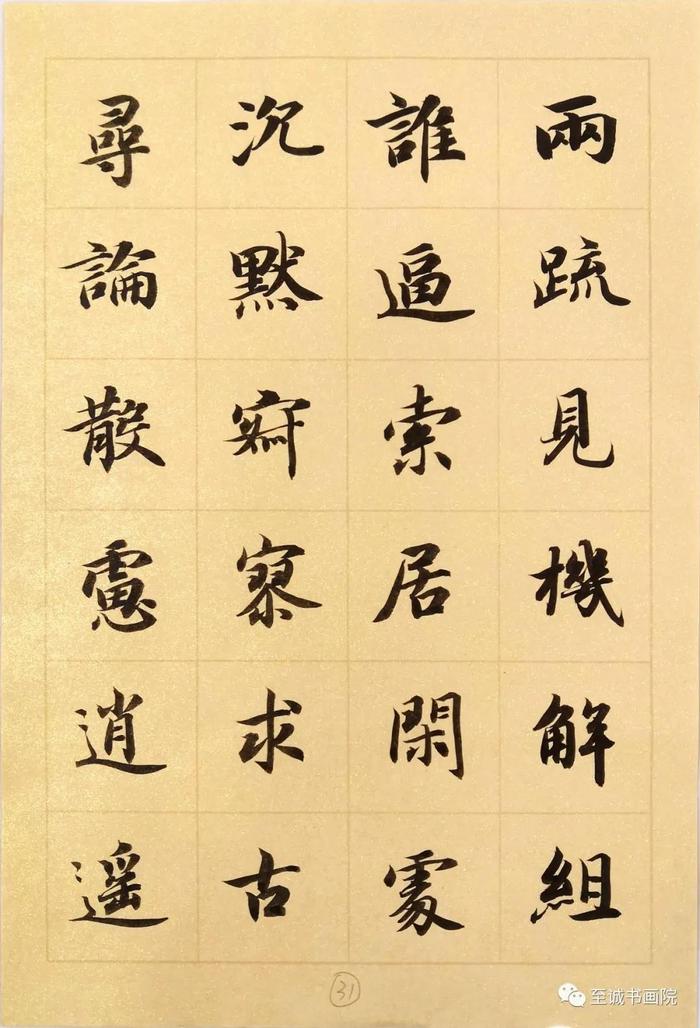 兩疏見機解組
誰逼索居閑處
沉默寂寥求古
尋論散慮逍遥
31
至诚书画院